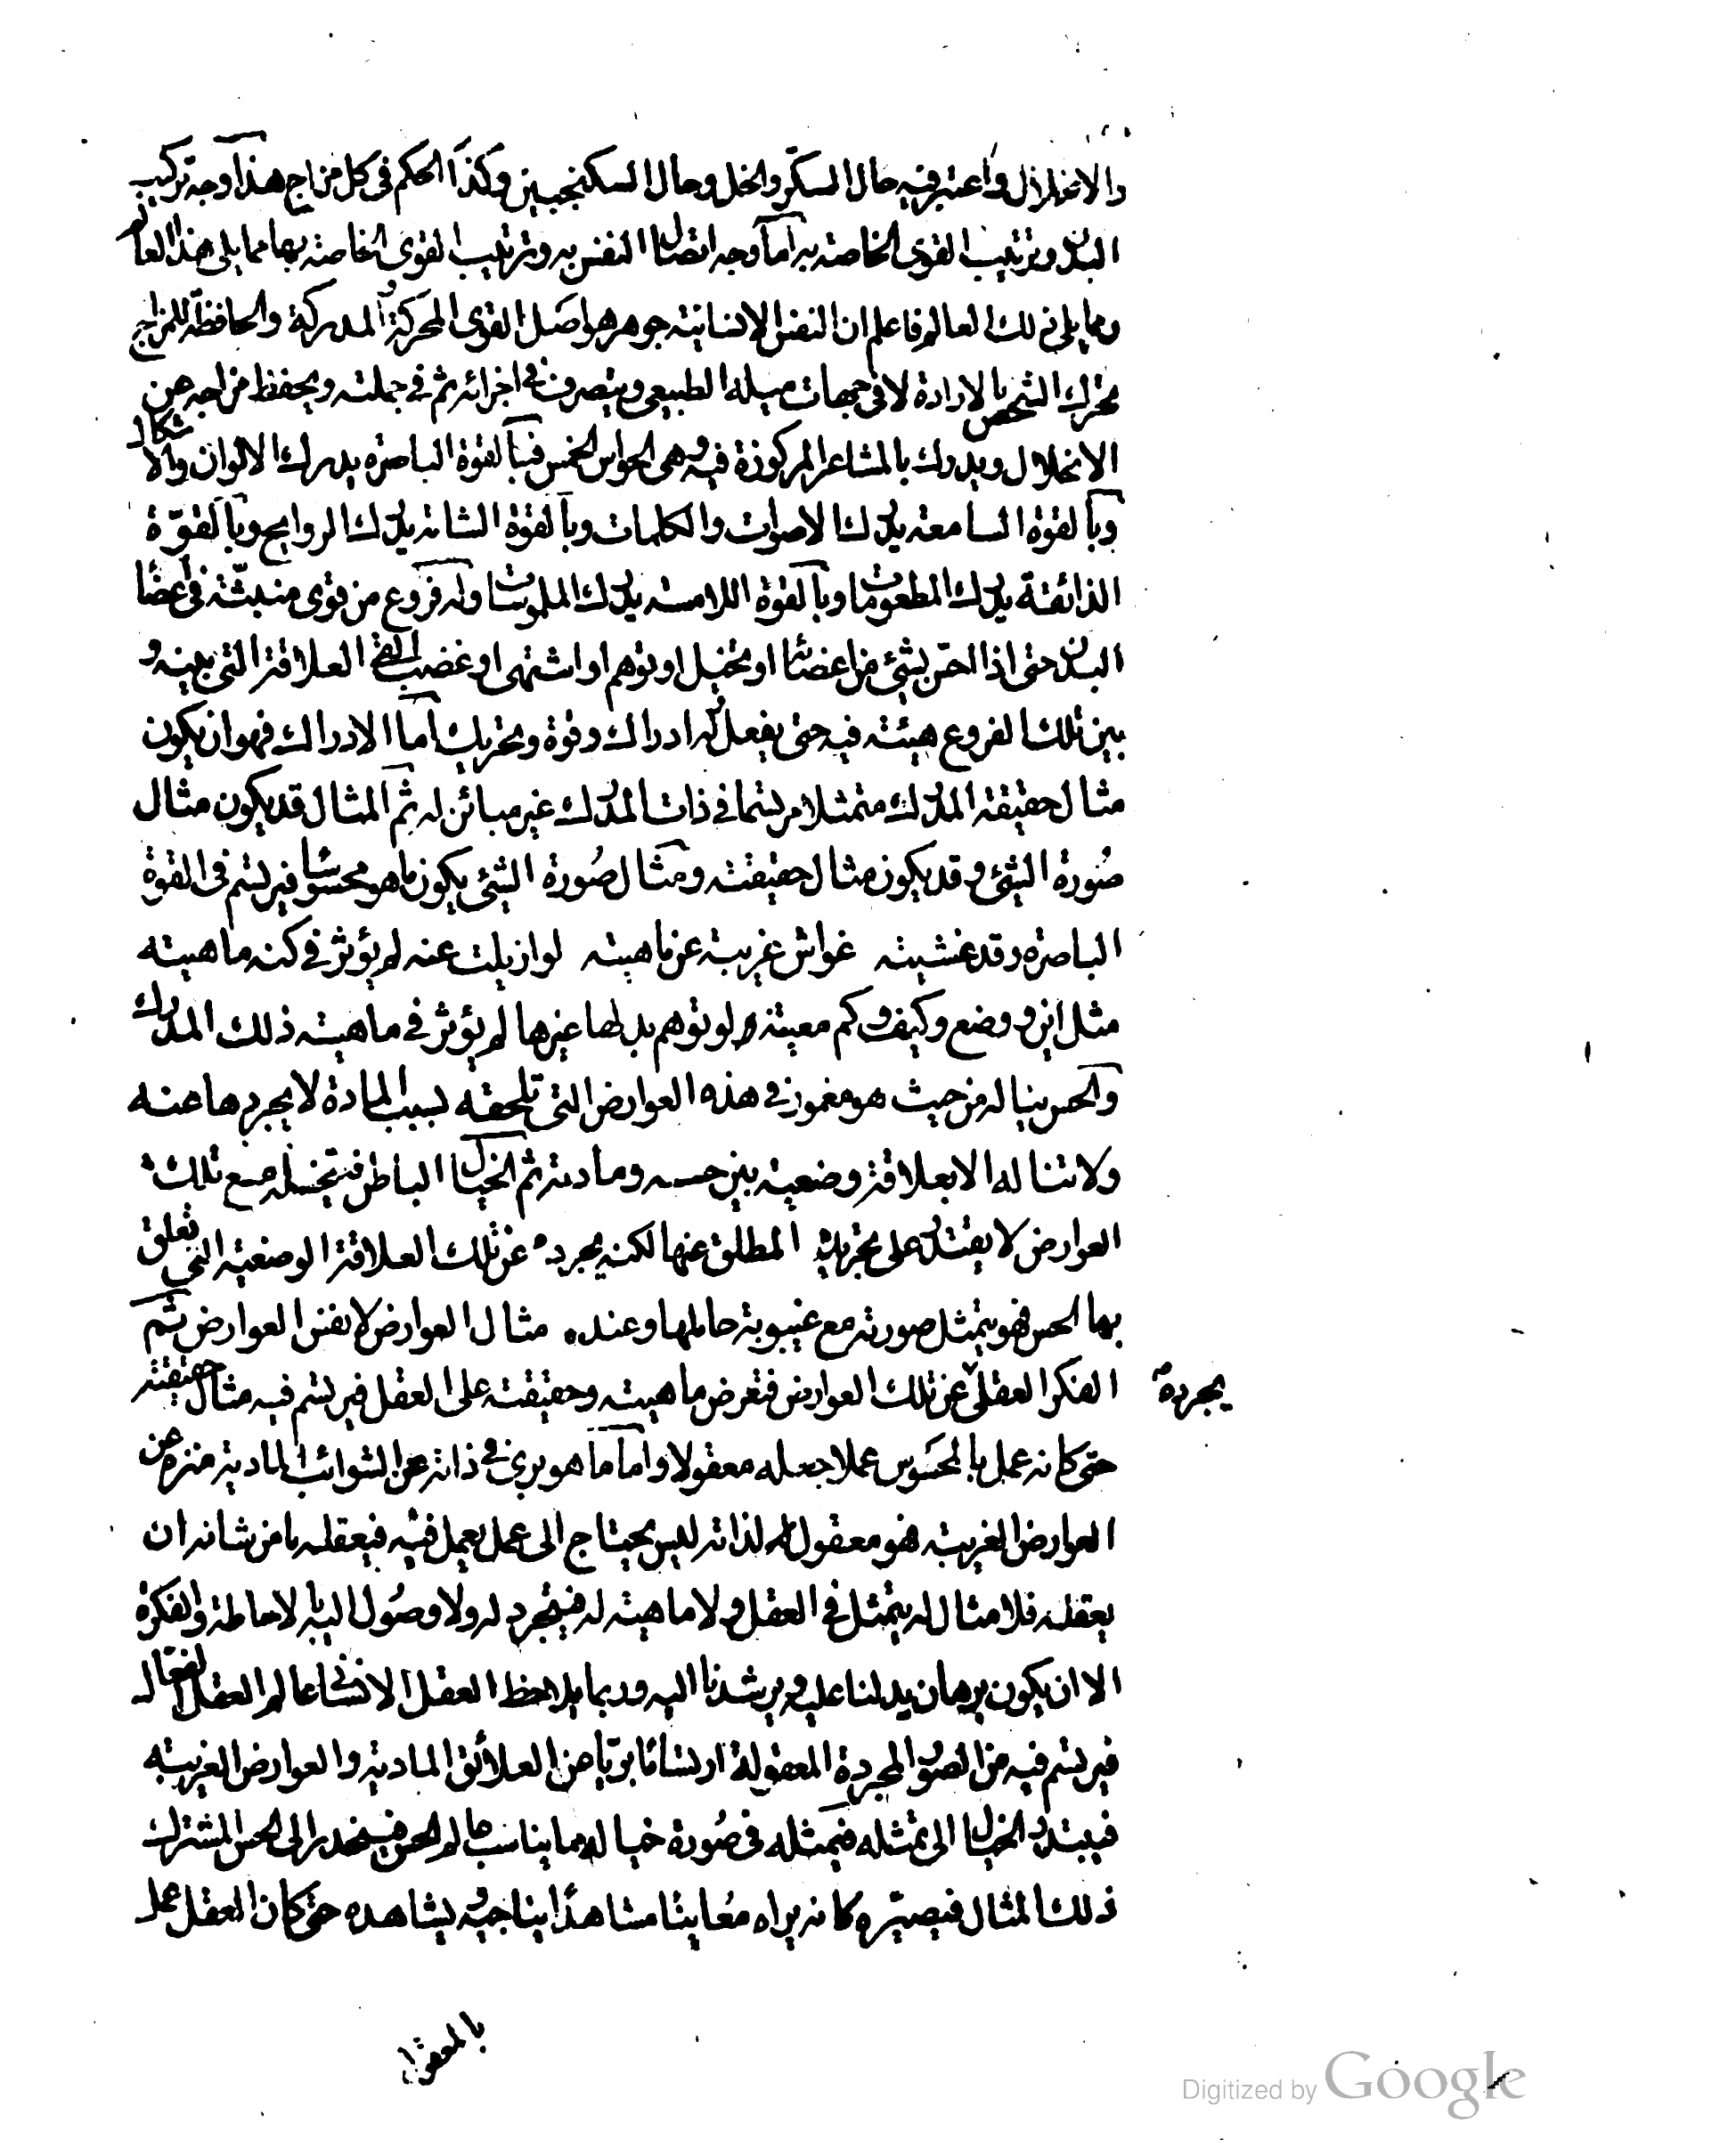 والانخلال واعتبر فيه حال السكر والخل وحال السكنجبين وكذا الحكم فى كل مزاج هذا وجه تركيب
البدن وترتيب القوى الخاصة به اما وجه اتصال النفس به وترتيب القوى الخاصة بها مما يلى هذا العالم
ومما يلى ذلك العالم فاعلم ان النفس الانسانية جوهر هو اصل القوى المحركة والمدركة والحافظة للمزاج
تحرك الشخص بالارادة لا فى جهات ميله الطبيعى ويتصرف فى اجزائه ثم فى جملته ويحفظ مزاجه عن
الانحلال ويدرك بالمشاعر المركوزة فيه وهى الحواس الخمس فبالقوة الباصرة يدرك الالوان والاشكال
وبالقوة السامعة يدرك الاصوات والكلمات وبالقوة الشامة يدرك الروايح وبالقوة
الذائقة يدرك المطعومات وبالقوة اللامسة يدرك الملموسات وله فروع من قوى منبثة فى اعضا
البدن حتى اذا احس بشئ من اعضائه او تخيل او توهم او اشتهى او غضب القى العلاقة التى بينه و
بين تلك الفروع هيئة فيه حتى يفعل وله ادراك وقوة وتحريك اما الادراك فهو ان يكون
مثال حقيقة المدرك متمثلا مرتسما فى ذات المدرك غير مبائن له ثم المثال قد يكون مثال
صورة الشئ وقد يكون مثال حقيقته ومثال صورة الشئ يكون ما هو محسوسا فيرتسم فى القوة
الباصرة وقد غشيته غواش غريبة عن ماهيته لو ازيلت عنه لم يؤثر فى كنه ماهيته
مثل اين ووضع وكيف وكم معينة ولو توهم بدلها غيرها لم يؤثر فى ماهية ذلك المدرك
والحس يناله من حيث هو مغمور فى هذه العوارض التى تلحقه بسبب المادة لا يجردها عنه
ولا تناله الا بعلاقة وضعية بين حسه ومادته ثم الخيال الباطن فتخيله مع تلك
العوارض لا يقتدر على تجريده المطلق عنها لكنه يجرده عن تلك العلاقة الوضعية التى تعلق
بها الحس فهو يتمثل صورته مع غيبوبة حاملها وعنده مثال العوارض لا نفس العوارض ثم
الفكر العقلى يجرده عن تلك العوارض فتعرض ماهيته وحقيقته على العقل فيرتسم فيه مثال حقيقته
حتى كانه عمل بالمحسوس عملا جعله معقولا واما ما هو برئ فى ذاته عن الشوائب المادية منزه عن
العوارض الغريبة فهو معقول لذاته ليس يحتاج الى عمل يعمل فيه فيعقله ما من شانه ان
يعقله فلا مثال له يتمثل فى العقل ولا ماهية له فيتجرد له ولا وصول اليه بالاحاطة والفكرة
الا ان يكون برهان يدلنا عليه ويرشدنا اليه وربما يلاحظ العقل الانسانى عالم العقل الفعال
فيرتسم فيه من الصور المجردة المعقولة ارتساما بريا من العلائق المادية والعوارض الغريبة
فيبتدر الخيال الى تمثله فيمثله فى صورة خيالية مما يناسب عالم الحس فينحدر الى الحس المشترك
ذلك المثال فيصيره كانه يراه معاينا مشاهدا يناجيه ويشاهده حتى كان العقل عمل
بالمعقول
Digitized by Google